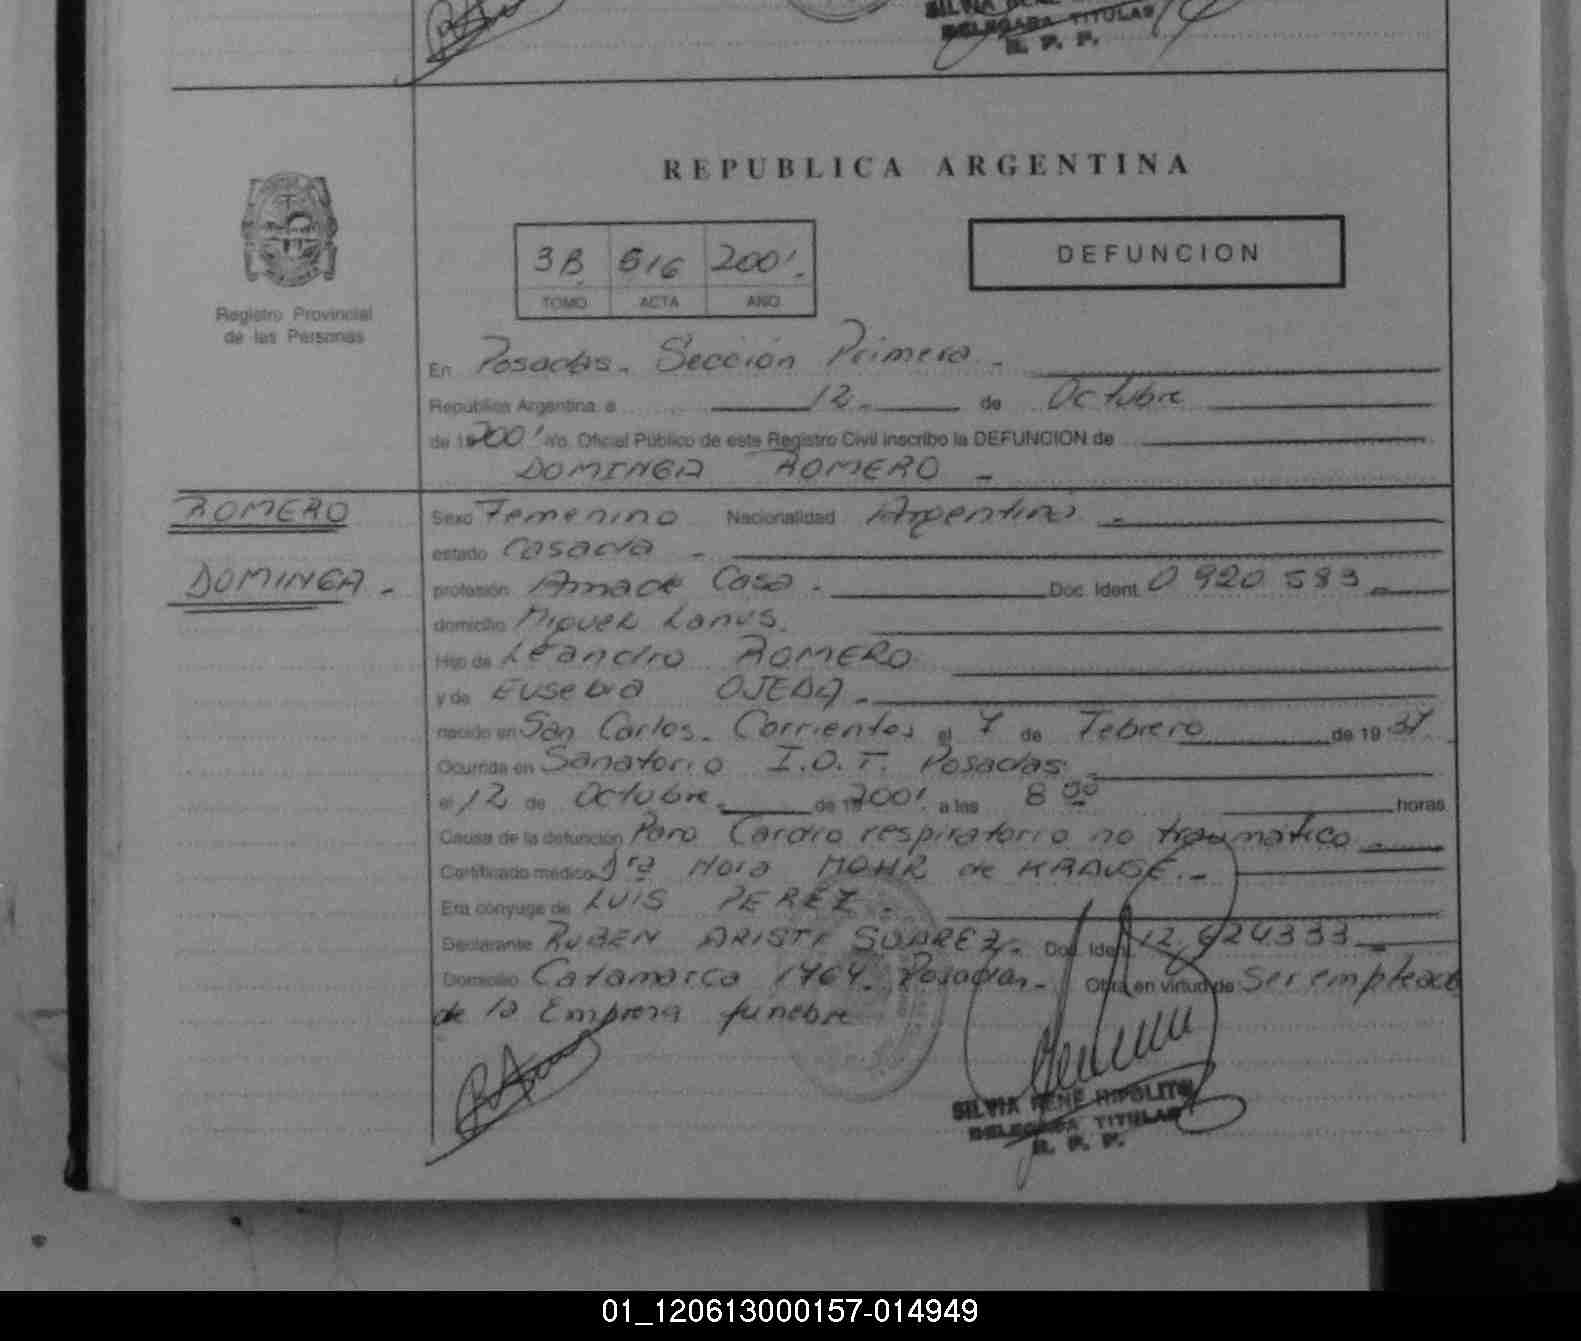 SILVIA RENE
DELEGADA TITULAR
R. P. P.
REPUBLICA ARGENTINA
3B 516 2001.
TOMO ACTA AÑO
DEFUNCION
Registro Provincial
de las Personas
En Posadas. Sección Primera.
República Argentina a 12. de Octubre
de 19 2001 yo. Oficial Público de este Registro Civil inscribo la DEFUNCION de
DOMINGA ROMERO -
ROMERO
DOMINGA -
Sexo Femenino Nacionalidad Argentina -
estado Casada -
profesión Ama de Casa. Doc. Ident. 0 920 583
domicilio Miguel Lanus.
Hijo de Leandro ROMERO
y de Eusebia OJEDA.
nacido en San Carlos. Corrientes el 7 de Febrero de 19 37.
Ocurrida en Sanatorio I.O.T. Posadas.
el 12 de Octubre. de 19 2001. a las 8 00 horas
Causa de la defunción Paro Cardio respiratorio no traumático
Certificado médico Dra MOHR de KRAUSE.-
Era cónyuge de LUIS PEREZ.
Declarante RUBEN ARISTI SUAREZ. Doc. Ident. 12,424333
Domicilio Catamarca 1764. Posadas. Obra en virtud de Ser empleado
de la Empresa funebre
SILVIA RENE HIPOLITO
DELEGADA TITULAR
R. P. P.
01_120613000157-014949